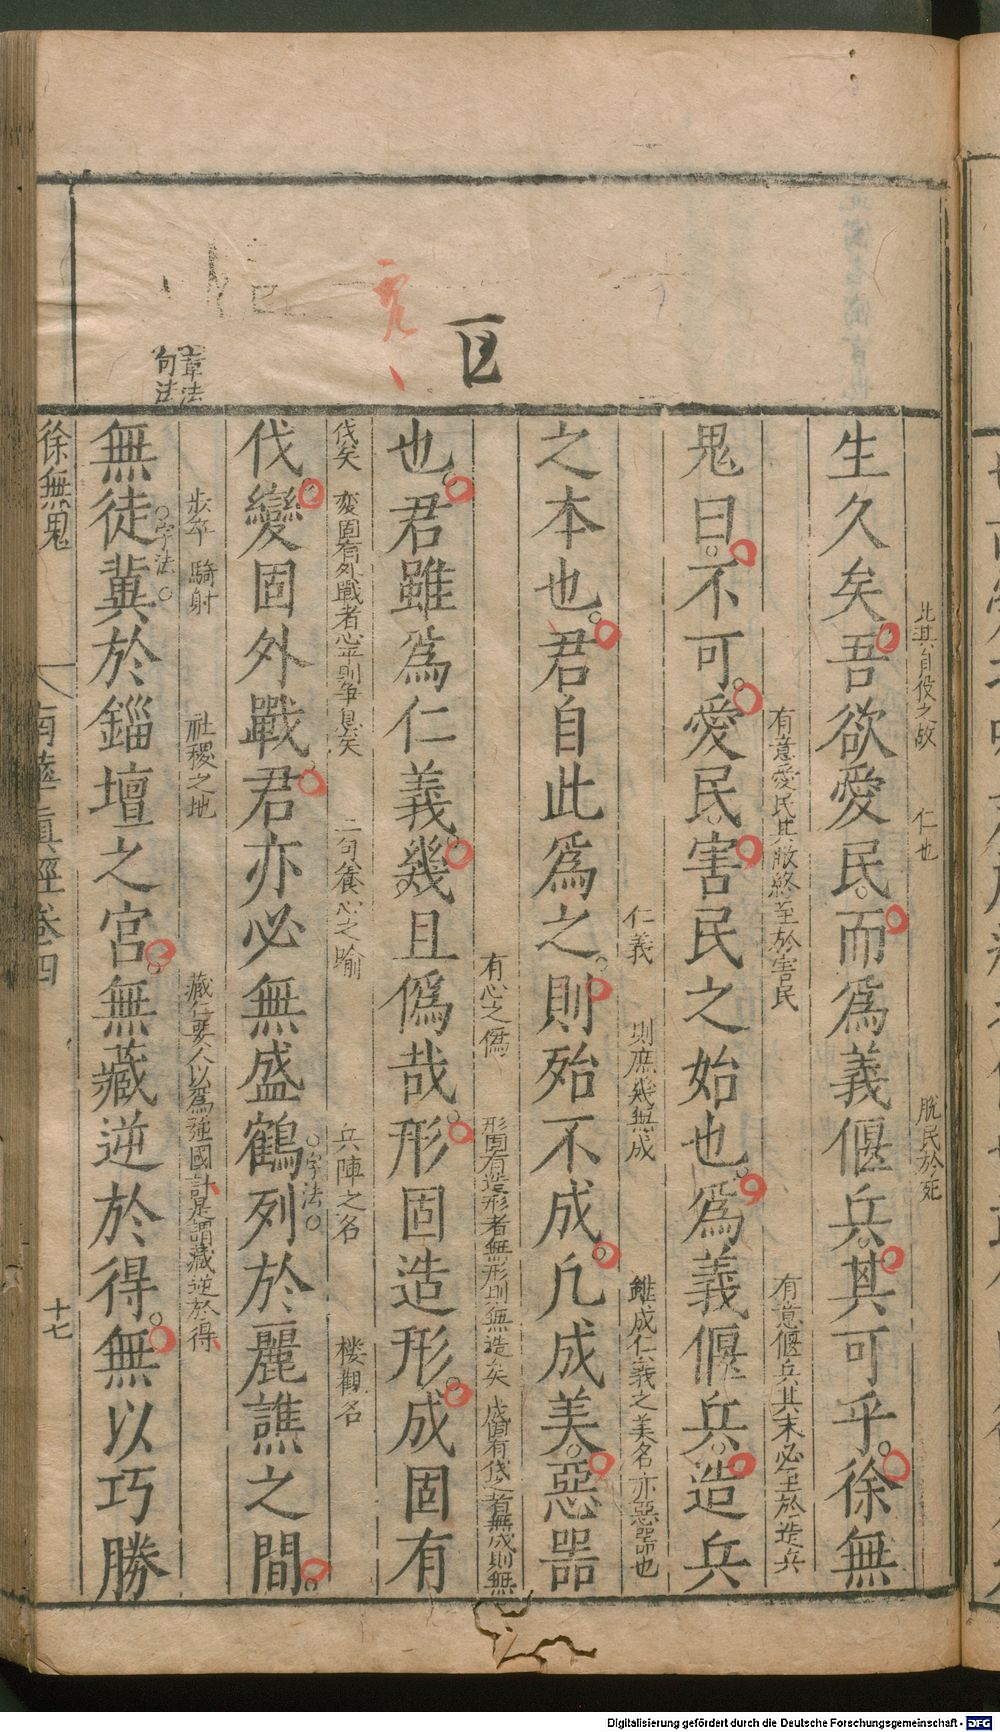 比其自役之故 仁也 脫民於死
生久矣吾欲愛民而爲義偃兵其可乎徐無
有意愛民其敝終至於害民 有意偃兵其末必至於造兵
鬼曰不可愛民害民之始也爲義偃兵造兵
仁義 則庶幾無成 雖成仁義之美名亦惡器也
之本也君自此爲之則殆不成凡成美惡器
有心之僞 形固有造形者無形則無造矣 成固有伐之者無成則無
也君雖爲仁義幾且僞哉形固造形成固有
伐矣 変固有外戰者心平則争息矣 二句養心之喻 兵陣之名 楼觀名
伐變固外戰君亦必無盛鶴列於麗譙之間
字法
步卒 騎射 社稷之地 藏仁要人以爲強國計是謂藏逆於得
章法
句法
無徒冀於錙壇之宮無藏逆於得無以巧勝
字法
徐無鬼 南華真經卷四 十七
Digitalisierung gefördert durch die Deutsche Forschungsgemeinschaft - DFG